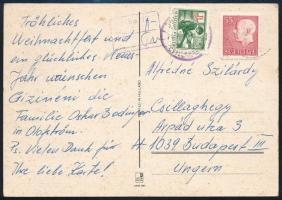 Fröhliches
Weihnachtsfest und
ein glückliches Neues
Jahr wünschen
Gizinéni die
Familie Oskar
in
Ps. Vielen Dank für
Ihre liebe Karte!
55
SVERIGE
Alfrédné Szilárdy
Csillaghegy
Árpád utca 3
H 1039 Budapest III
Ungern